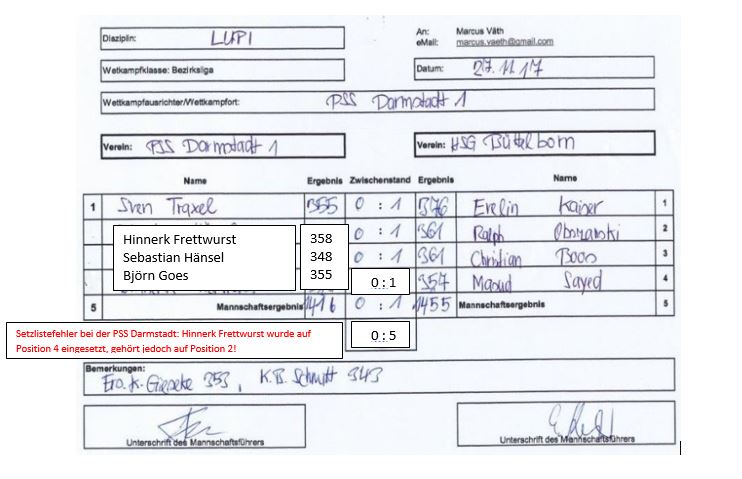 Disziplin: LUPI
An: Marcus Väth
eMail: marcus.vaeth@gmail.com
Wetkampfklasse: Bezirksliga
Datum: 27.11.17
Wettkampfausrichter/Wettkampfort: PSS Darmstadt 1
Verein: PSS Darmstadt 1
Verein: HSG Büttelborn
Name Ergebnis Zwischenstand Ergebnis Name
1 Sven Traxel 355 0 : 1 376 Evelin Kaiser 1
Hinnerk Frettwurst 358 0 : 1 361 Ralph 2
Sebastian Hänsel 348 0 : 1 361 Christian Boos 3
Björn Goes 355 0 : 1 357 Masud Sayed 4
5 Mannschaftsergebnis 1416 0 : 1 1455 Mannschaftsergebnis 5
Setzlistefehler bei der PSS Darmstadt: Hinnerk Frettwurst wurde auf
Position 4 eingesetzt, gehört jedoch auf Position 2!
0 : 5
Bemerkungen:
Ero. K. Gieseke 353, K.B. Schmitt 343
Unterschrift des Mannschaftsführers
Unterschrift des Mannschaftsführers